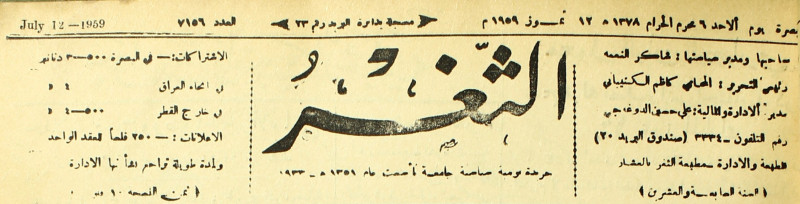 البصرة يوم الاحد ٦ محرم الحرام ١٣٧٨ ه ١٢ تموز ١٩٥٩ م
مسجلة بدائرة البريد رقم ٢٣
العدد ٧١٥٦
July 12—1959
صاحبها ومدير سياستها: شاكر النعمة
رئيس التحرير: المحامي كاظم الكتيباني
مدير الادارة والمالية: علي حسين الدوغجي
رقم التلفون – ٣٣٣٤ (صندوق البريد ٢٠)
الطبعة والادارة – مطبعة الثغر بالعشار
( السنة السابعة والعشرين )
الثغر
جريدة يومية سياسية جامعة تأسست عام ١٣٥١ ه – ١٩٣٣
الاشتراكات: — في البصرة ٥٠٠–٣ دنانير
في انحاء العراق ٤ »
في خارج القطر ٥٠٠–٤ »
الاعلانات: — ٢٥٠ فلساً للعقد الواحد
ولمدة طويلة تراجع بشأنها الادارة
( ثمن النسخة ١٠ )